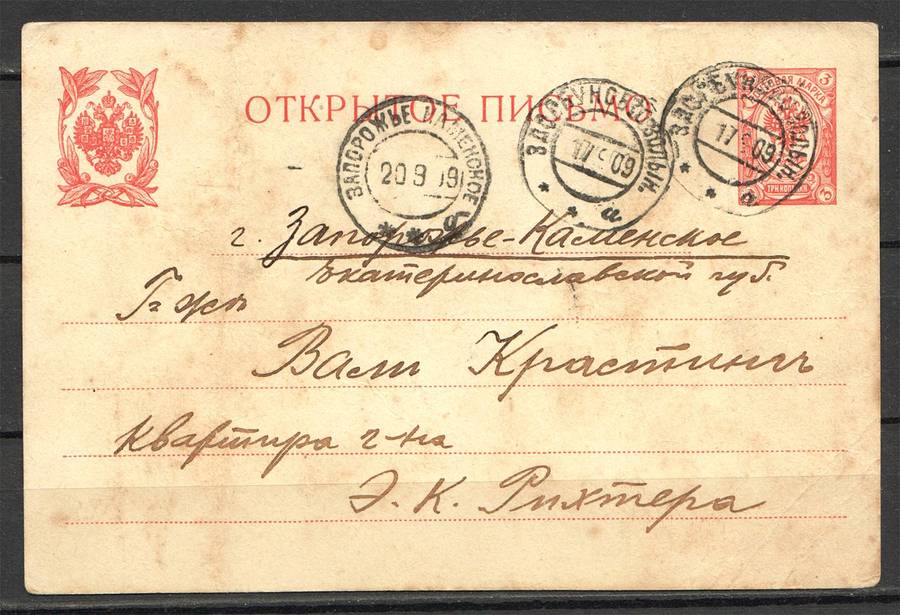 ОТКРЫТОЕ ПИСЬМО
МАРКА
3
3
ТРИ КОПѢЙКИ
ЗАПОРОЖЬЕ КАМЕНСКОЕ
20 9 09
б
ЗДОЛБУНОВО ВОЛЫН.
17 9 09
а
ЗДОЛБУНОВО ВОЛЫН.
17 9 09
а
г. Запорожье-Каменское
Екатеринославской губ.
Г-жѣ
Вали Крастинъ
Квартира г-на
Э. К. Рихтера